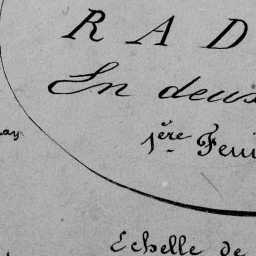 RAD
En deux
1ère Feui
ay
Echelle de